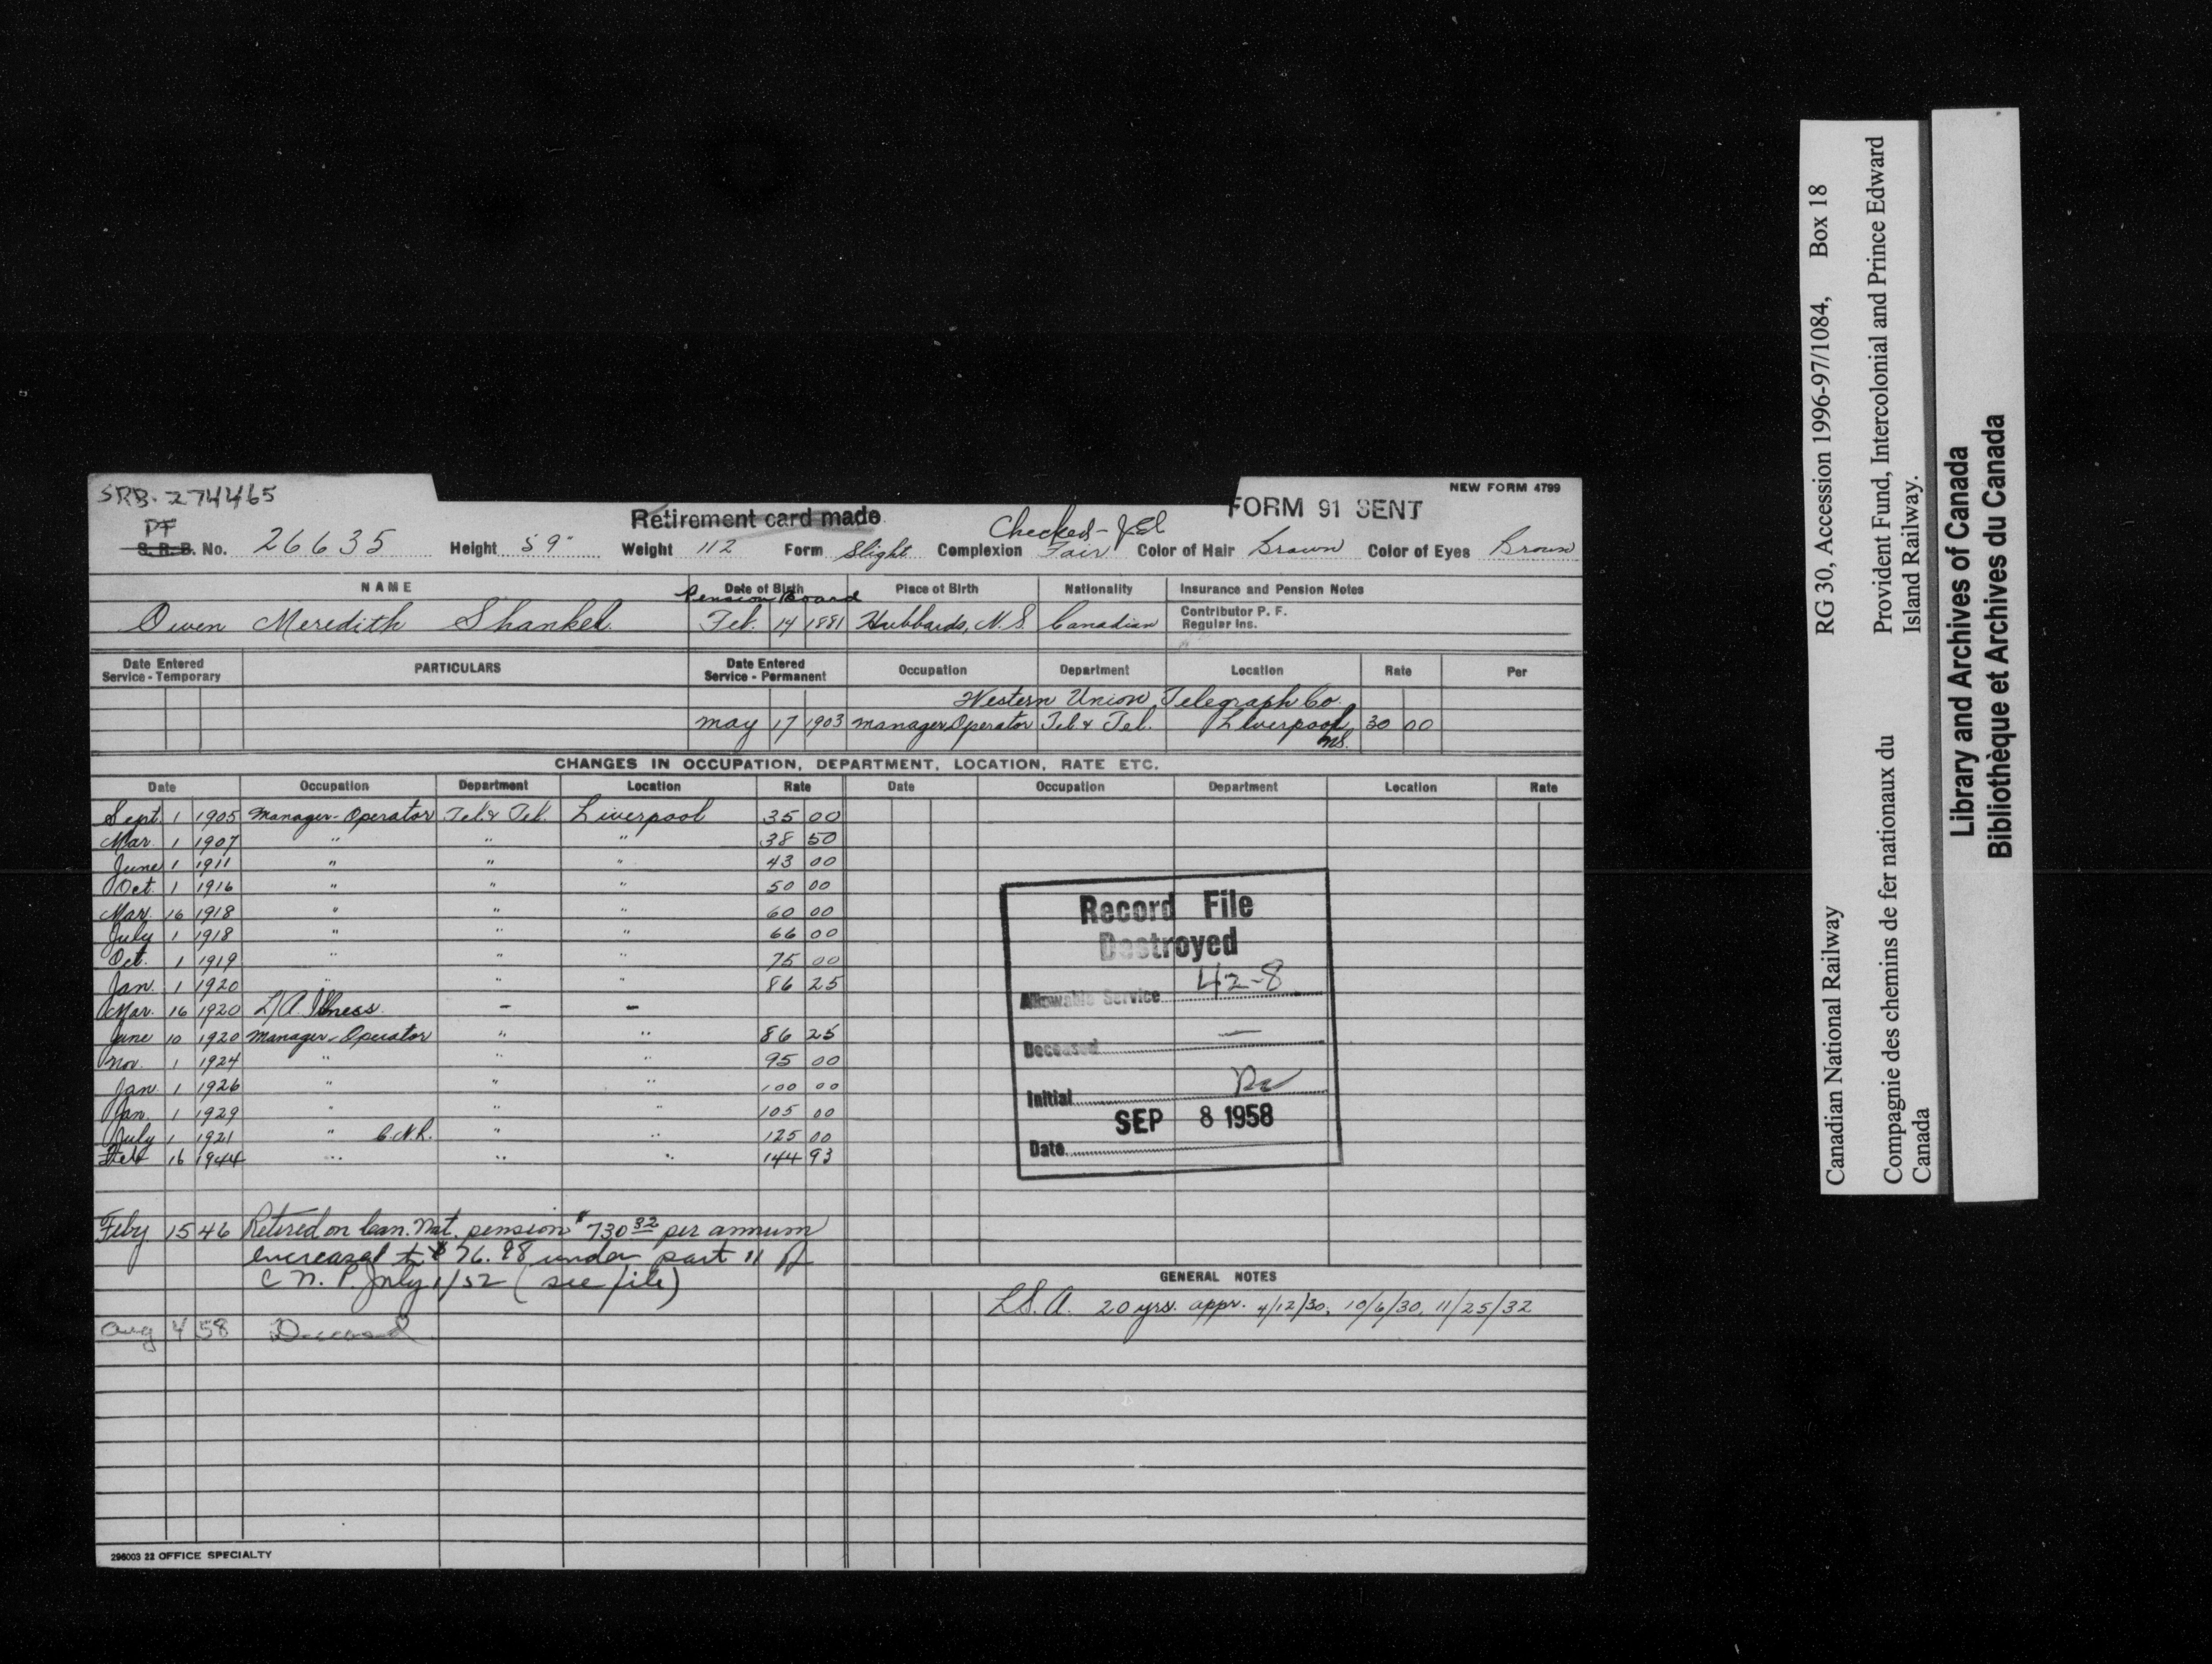 SRB. 274465
NEW FORM 4799
Retirement card made
FORM 91 SENT
PF
Checked-
S. R. B. No. 26635 Height 5 9" Weight 112 Form Slight Complexion Fair Color of Hair Brown Color of Eyes Brown
NAME Date of Birth Place of Birth Nationality Insurance and Pension Notes
Pension Board
Owen Meredith Shankel Feb. 14 1881 Hubbards, N.S. Canadian Contributor P. F.
Regular Ins.
Date Entered Service - Temporary PARTICULARS Date Entered Service - Permanent Occupation Department Location Rate Per
Western Union Telegraph Co.
May 17 1903 Manager Operator Tel & Tel. Liverpool 30 00
N.S.
CHANGES IN OCCUPATION, DEPARTMENT, LOCATION, RATE ETC.
Date Occupation Department Location Rate Date Occupation Department Location Rate
Sept. 1 1905 Manager-Operator Tel & Tel. Liverpool 35 00
Mar. 1 1907 " " " 38 50
June 1 1911 " " " 43 00
Oct. 1 1916 " " " 50 00
Mar. 16 1918 " " " 60 00
July 1 1918 " " " 66 00
Oct. 1 1919 " " " 75 00
Jan. 1 1920 " " " 86 25
Mar. 16 1920 L/A Illness. - -
June 10 1920 Manager-Operator " " 86 25
Nov. 1 1924 " " " 95 00
Jan. 1 1926 " " " 100 00
Jan. 1 1929 " " " 105 00
July 1 1921 " C.N.R. " " 125 00
Feb 16 1944 " " " 144 93
Feby 15 46 Retired on Can. Nat. pension $730 32 per annum
increased to $76.98 under part 11 of
C N. P. July 1/52 (see file)
Aug 4 58 Deceased
Record File
Destroyed
Allowable Service 42-8
Deceased —
Initial
SEP 8 1958
Date
GENERAL NOTES
L.S.A. 20 yrs. appr. 4/12/30, 10/6/30, 11/25/32
296003 22 OFFICE SPECIALTY
Canadian National Railway RG 30, Accession 1996-97/1084, Box 18
Compagnie des chemins de fer nationaux du Canada
Provident Fund, Intercolonial and Prince Edward Island Railway.
Library and Archives of Canada
Bibliothèque et Archives du Canada